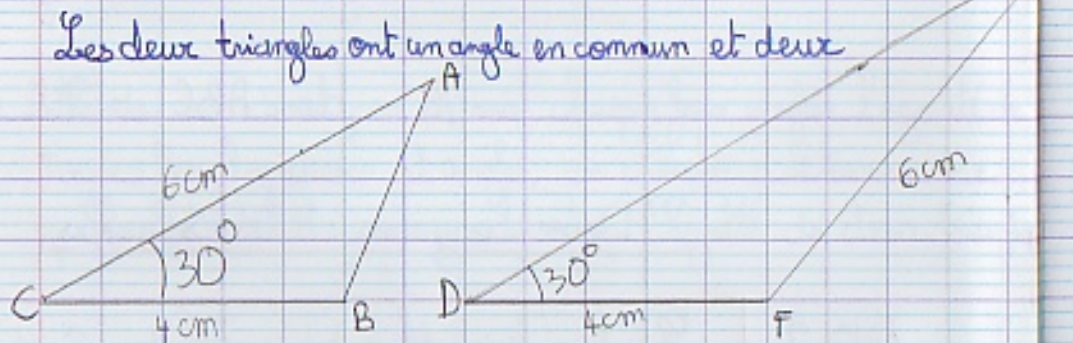 Les deux triangles ont un angle en commun et deux
A
6cm
6cm
30°
30°
C
4cm
B
D
4cm
F